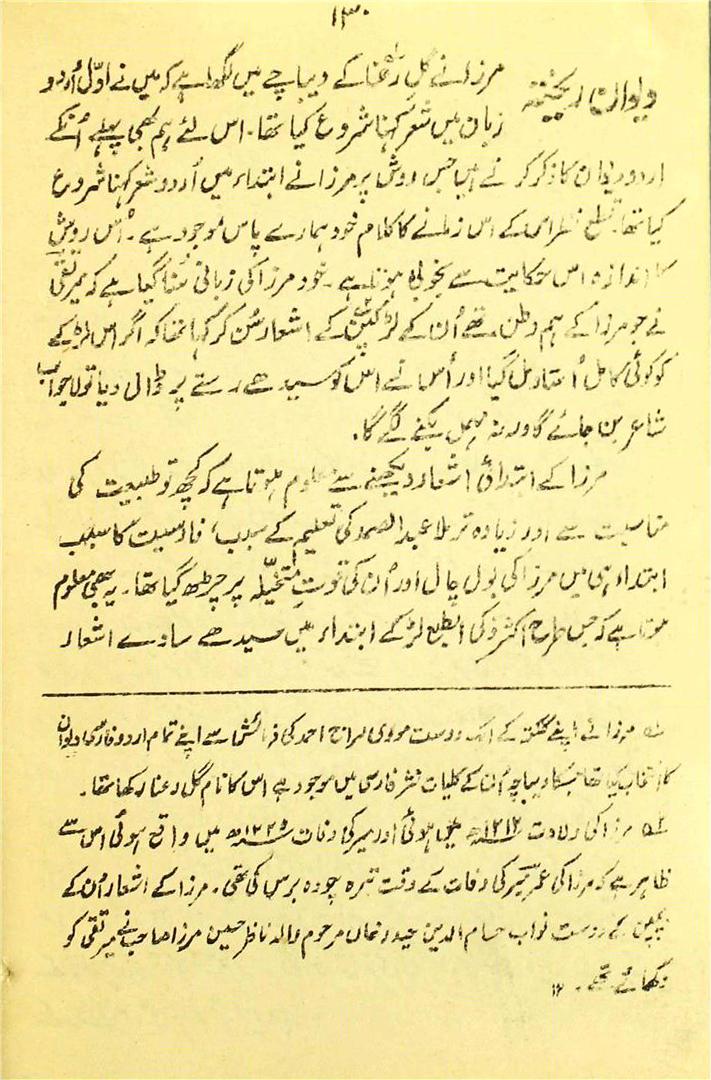 ۱۳۰
دیوان ریختہ مرزا نے گل رعنا کے دیباچے میں لکھا ہے کہ میں نے اول اُردو
زبان میں شعر کہنا شروع کیا تھا۔ اس لئے ہم بھی پہلے اُنکے
اردو دیوان کا ذکر کرتے ہیں جس روش پر مرزا نے ابتداء میں اُردو شعر کہنا شروع
کیا تھا۔ قطع نظر اس کے اس زمانے کا کلام خود ہمارے پاس موجود ہے۔ اُس روش
کا اندازہ اس حکایت سے بخوبی ہوتا ہے۔ خود مرزا کی زبانی سُنا گیا ہے کہ میر تقی
نے جو مرزا کے ہم وطن تھے اُن کے لڑکپن کے اشعار سُن کر کہا تھا کہ اگر اس لڑکے
کو کوئی کامل اُستاد مل گیا اور اُس نے اس کو سیدھے رستے پر ڈال دیا تو لاجواب
شاعر بن جائے گا ورنہ مہمل بکنے لگے گا۔
مرزا کے ابتدائی اشعار دیکھنے سے معلوم ہوتا ہے کہ کچھ تو طبیعت کی
مناسبت سے اور زیادہ تر ملا عبدالصمد کی تعلیم کے سبب، فارسیت کا سبب
ابتداء ہی میں مرزا کی بول چال اور اُن کی قوتِ متخیّلہ پر چڑھ گیا تھا۔ یہ بھی معلوم
ہوتا ہے کہ جس طرح اکثر ذکی الطبع لڑکے ابتداء میں سیدھے سادے اشعار
لہ مرزا نے اپنے کے ایک دوست مولوی سراج احمد کی فرمائش سے اپنے تمام اردو فارسی دیوان
کا انتخاب کیا تھا جسکا دیباچہ اُن کے کلیات نثر فارسی میں موجود ہے اس کا نام گل رعنا رکھا تھا۔
۲ہ مرزا کی ولادت ۱۲۱۲ھ میں ہوئی اور میر کی وفات ۱۲۲۵ھ میں واقع ہوئی اس سے
ظاہر ہے کہ مرزا کی عمر میر کی وفات کے وقت تیرہ چودہ برس کی تھی۔ مرزا کے اشعار اُن کے
بچپن کے دوست نواب حسام الدین حیدر خاں مرحوم والد ناظر حسین مرزا صاحب نے میر تقی کو
دکھائے تھے۔ ۱۲